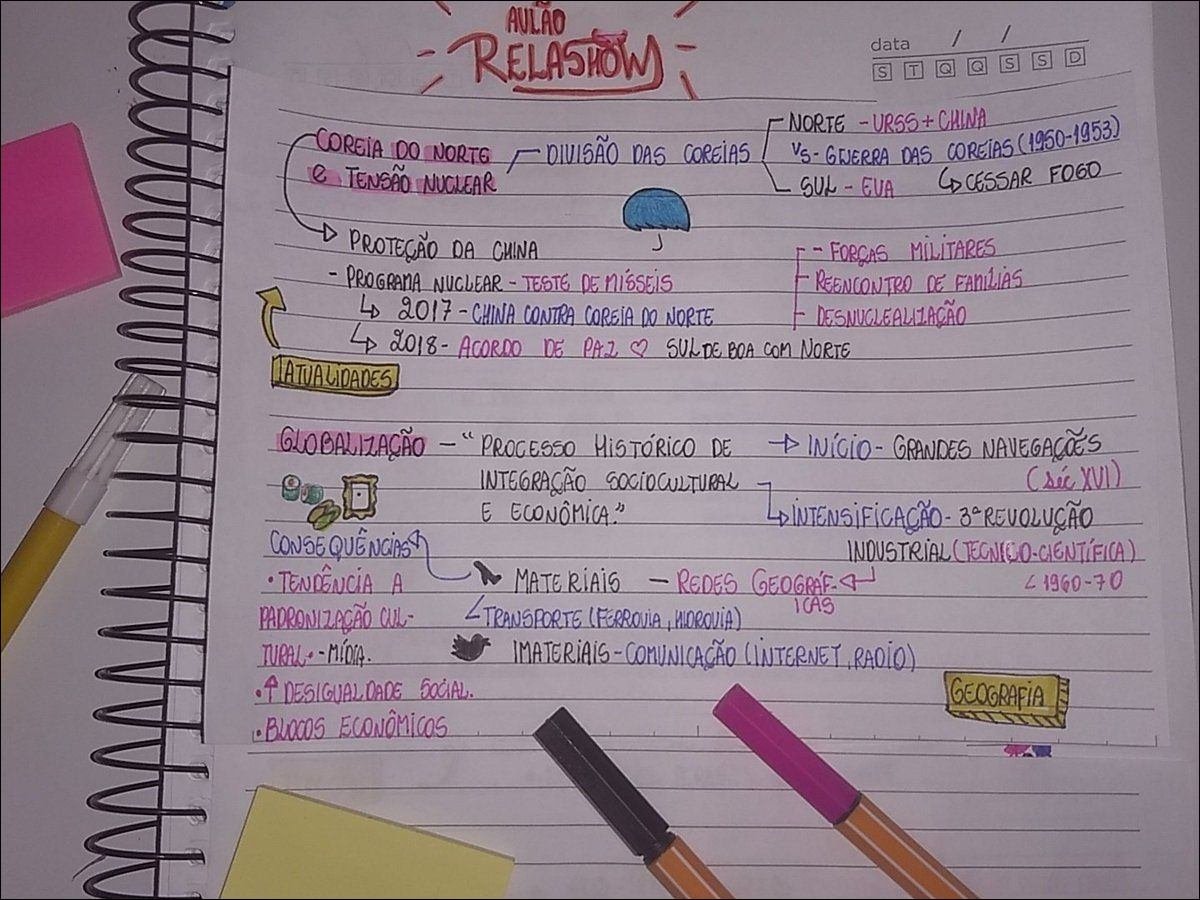 AULÃO
RELASHOW
data / /
S T Q Q S S D
COREIA DO NORTE
e TENSÃO NUCLEAR
DIVISÃO DAS COREIAS
NORTE - URSS + CHINA
VS - GUERRA DAS COREIAS (1950-1953)
SUL - EUA ↳ CESSAR FOGO
PROTEÇÃO DA CHINA
- PROGRAMA NUCLEAR - TESTE DE MÍSSEIS
↳ 2017 - CHINA CONTRA COREIA DO NORTE
↳ 2018 - ACORDO DE PAZ ♡ SUL DE BOA COM NORTE
- FORÇAS MILITARES
REENCONTRO DE FAMÍLIAS
DESNUCLEALIZAÇÃO
ATUALIDADES
GLOBALIZAÇÃO - "PROCESSO HISTÓRICO DE
INTEGRAÇÃO SOCIOCULTURAL
E ECONÔMICA."
→ INÍCIO - GRANDES NAVEGAÇÕES
(séc XVI)
↳ INTENSIFICAÇÃO - 3ª REVOLUÇÃO
INDUSTRIAL (TECNICO-CIENTÍFICA)
∠ 1960-70
MATERIAIS - REDES GEOGRÁF-
ICAS
∠ TRANSPORTE (FERROVIA, HIDROVIA)
IMATERIAIS - COMUNICAÇÃO (INTERNET, RADIO)
CONSEQUÊNCIAS
• TENDÊNCIA A
PADRONIZAÇÃO CUL-
TURAL • - MÍDIA.
• ↑ DESIGUALDADE SOCIAL.
• BLOCOS ECONÔMICOS
GEOGRAFIA